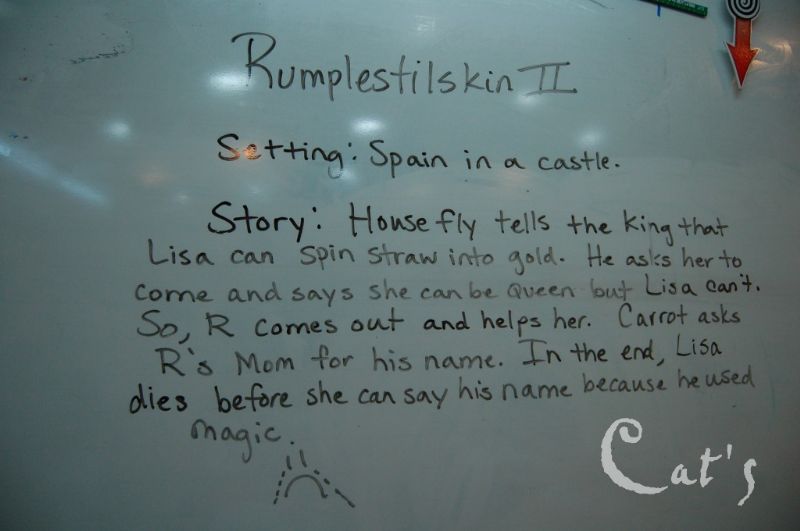 Rumplestilskin II
Setting: Spain in a castle.
Story: House fly tells the king that
Lisa can spin straw into gold. He asks her to
come and says she can be Queen but Lisa can't.
So, R comes out and helps her. Carrot asks
R's Mom for his name. In the end, Lisa
dies before she can say his name because he used
magic.
Cat's